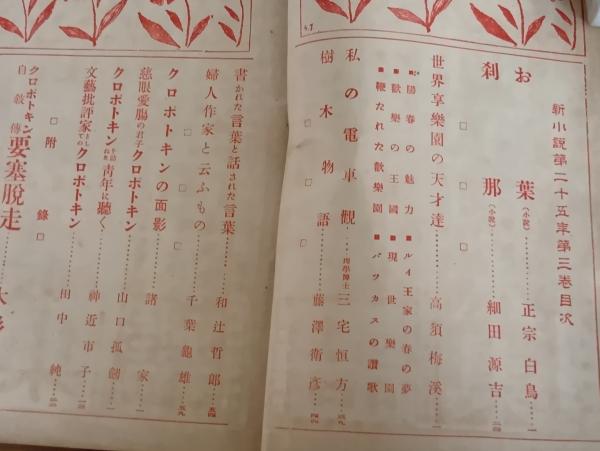 新小説第二十五年第三巻目次
お葉(小説)……正宗白鳥……一
刹那(小説)……細田源吉……二四
世界享樂園の天才達……高須梅溪……一
■陽春の魅力■ルイ王家の春の夢
■歡樂の王國■現世樂園
■鞭たれた歡樂園■バツカスの讃歌
私の電車觀……理學博士三宅恒方……三九
樹木物語……藤澤衛彦……四六
書かれた言葉と話された言葉……和辻哲郎……五四
婦人作家と云ふもの……千葉龜雄……五九
クロポトキンの面影……諸家
慈眼愛腸の牢子クロポトキン……山口孤劍……一
クロポトキン青年に聽く……神近市子……一三
文藝批評家としてのクロポトキン……田中純
□附錄□
クロポトキン自敍傳要塞脱走……大杉